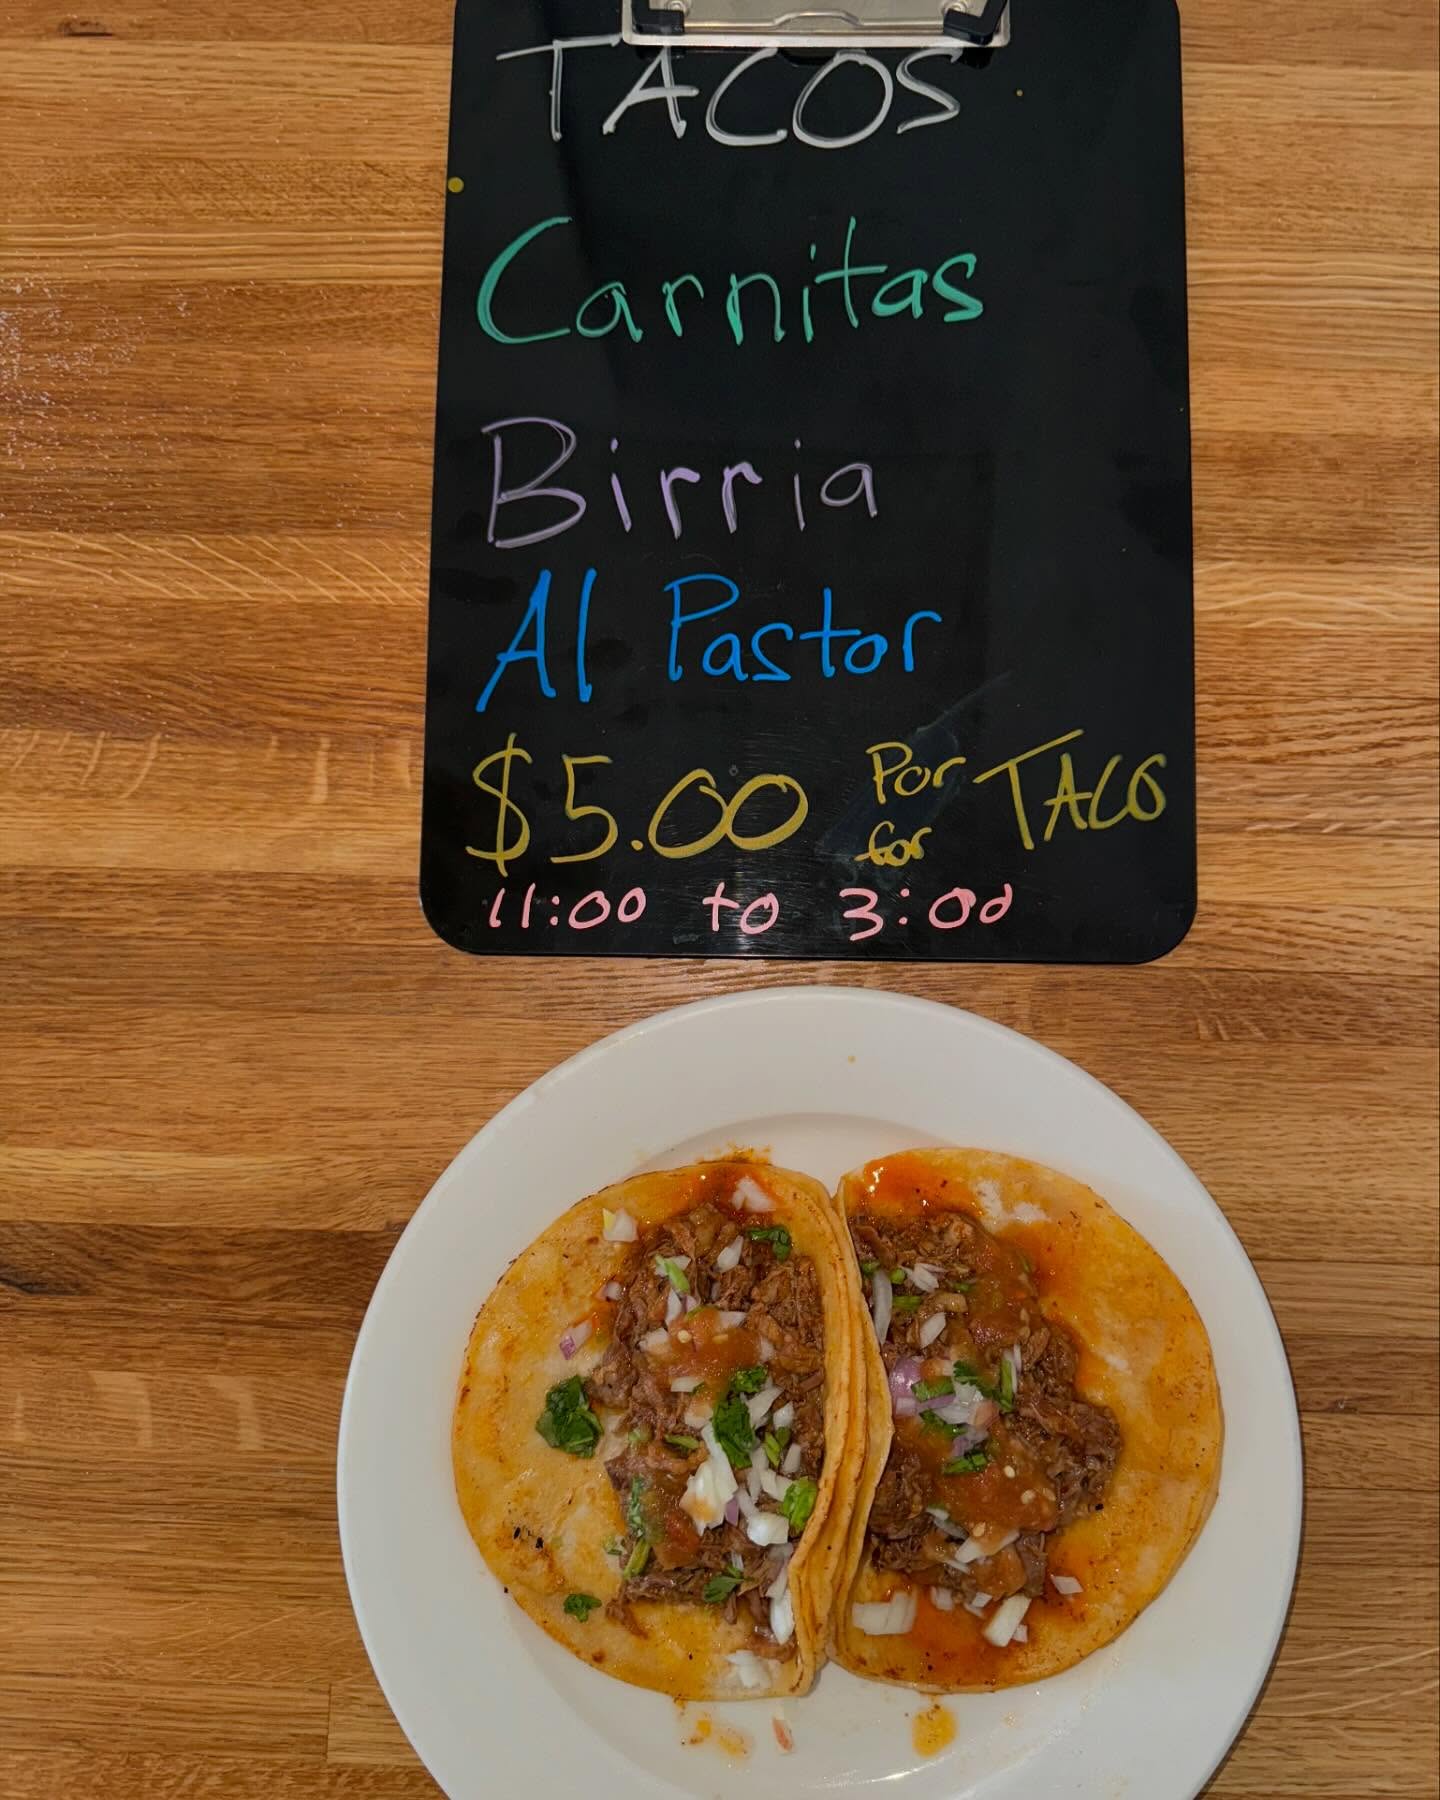 TACOS
Carnitas
Birria
Al Pastor
$5.00 Por for TACO
11:00 to 3:00